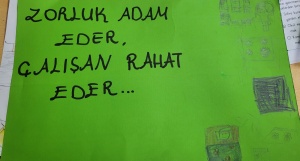 ZORLUK ADAM
EDER,
ÇALIŞAN RAHAT
EDER...